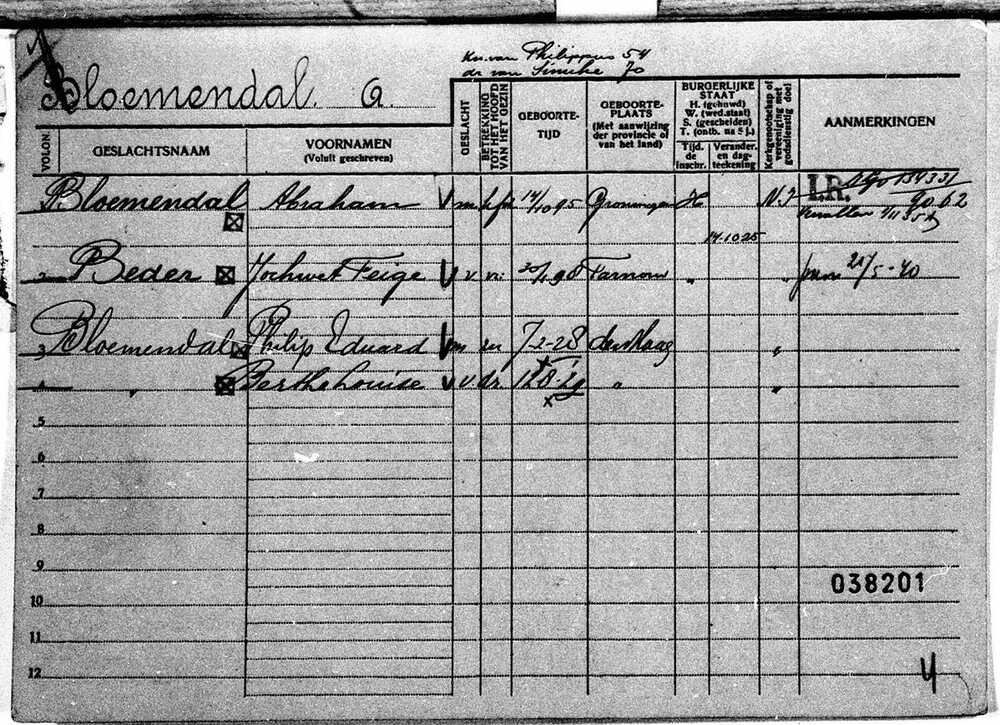 Kn. van Philippus 54
dr van Simche 70
Bloemendal. G.
VOLGN.
GESLACHTSNAAM
VOORNAMEN
(Voluit geschreven)
GESLACHT
BETREKKING TOT HET HOOFD VAN HET GEZIN
GEBOORTE-
TIJD
GEBOORTE-
PLAATS
(Met aanwijzing
der provincie of
van het land)
BURGERLIJKE
STAAT
H. (gehuwd)
W. (wed.staat)
S. (gescheiden)
T. (ontb. na 5 j.)
Tijd.
de
inschr.
Verander.
en dag-
teekening
Kerkgenootschap of vereeniging met godsdienstig doel
AANMERKINGEN
Bloemendal Abraham V m hfd 14/10 95 Groningen H N.I I.R.
90 62
14.10 25
2 Beder Jochwet Feige V v. vr. 90 Tarnow " " 21/5-40
3 Bloemendal Philip Eduard V m zn 7-2-28 den Haag "
4 " Bertha Louise V v. dr. "
5
6
7
8
9
038201
10
11
12
4